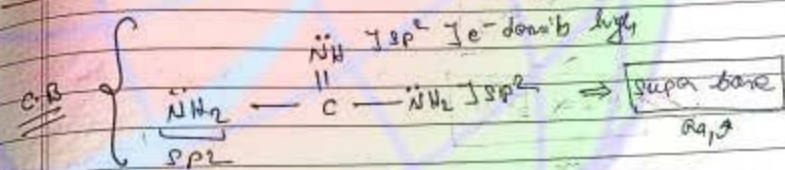 N̈H ] sp² ] e⁻ density high
||
C.B { N̈H₂ — C — N̈H₂ ] sp² ⇒ super base
sp2